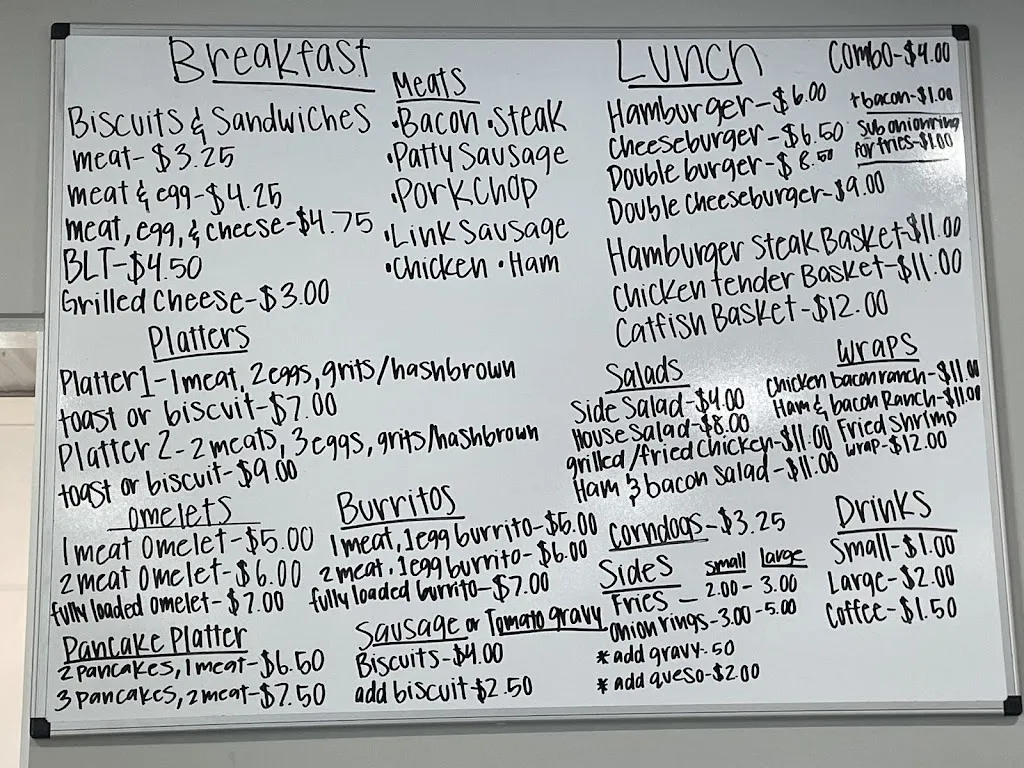 Breakfast
Biscuits & Sandwiches
meat-$3.25
meat & egg-$4.25
meat, egg, & cheese-$4.75
BLT-$4.50
Grilled Cheese-$3.00
Meats
•Bacon •Steak
•Patty Sausage
•Porkchop
•Link Sausage
•Chicken •Ham
Platters
Platter 1-1 meat, 2 eggs, grits/hashbrown
toast or biscuit-$7.00
Platter 2-2 meats, 3 eggs, grits/hashbrown
toast or biscuit-$9.00
Omelets
1 meat Omelet-$5.00
2 meat Omelet-$6.00
fully loaded omelet-$7.00
Burritos
1 meat, 1 egg burrito-$5.00
2 meat, 1 egg burrito-$6.00
fully loaded burrito-$7.00
Pancake Platter
2 pancakes, 1 meat-$6.50
3 pancakes, 2 meat-$7.50
Sausage or Tomato gravy
Biscuits-$4.00
add biscuit-$2.50
Lunch
Combo-$4.00
+bacon-$1.00
Sub onion ring
for fries-$1.00
Hamburger-$6.00
Cheeseburger-$6.50
Double burger-$8.50
Double Cheeseburger-$9.00
Hamburger Steak Basket-$11.00
Chicken tender Basket-$11.00
Catfish Basket-$12.00
Salads
Side Salad-$4.00
House Salad-$8.00
grilled/fried chicken-$11.00
Ham & bacon Salad-$11.00
Wraps
Chicken bacon ranch-$11.00
Ham & bacon Ranch-$11.00
Fried Shrimp
wrap-$12.00
Corndogs-$3.25
Sides small large
Fries - 2.00 - 3.00
onion rings-3.00 -5.00
* add gravy-.50
* add queso-$2.00
Drinks
Small-$1.00
Large-$2.00
Coffee-$1.50